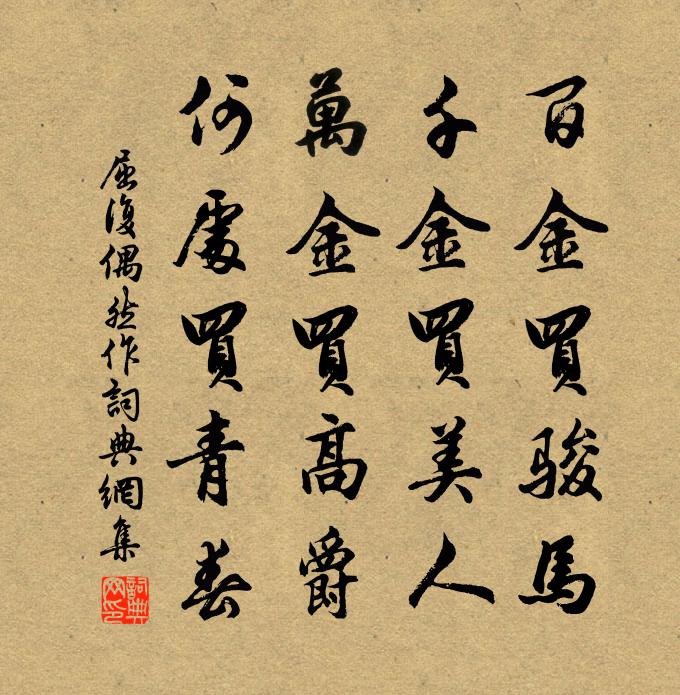 百金買駿馬
千金買美人
萬金買高爵
何處買青春
屈復偶然作詞典網集
詞典網印